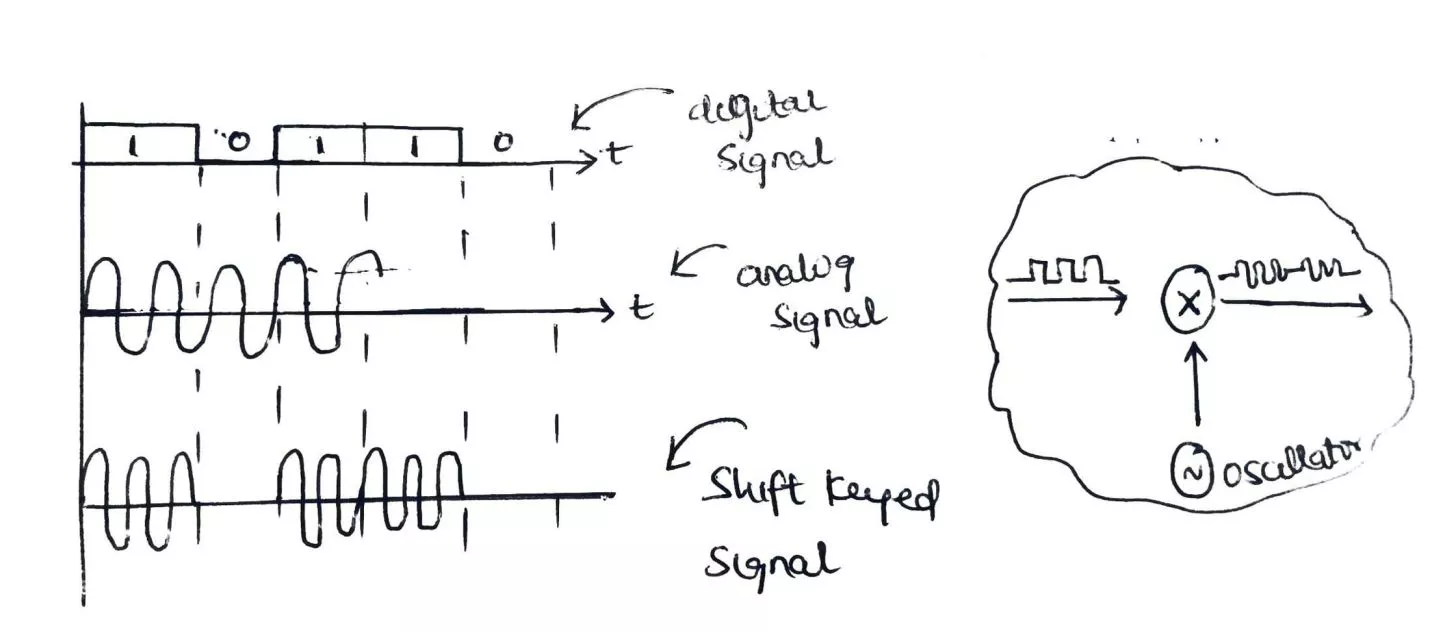 1 0 1 1 0
t
digital
signal
t
analog
signal
Shift keyed
Signal
X
~ oscillator